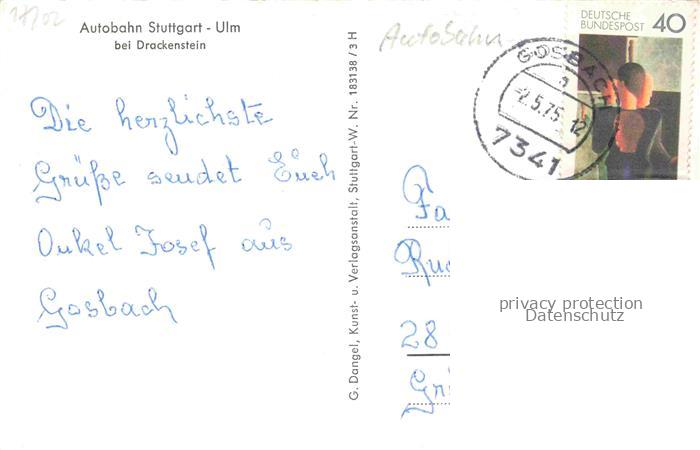 18/02
Autobahn Stuttgart - Ulm
bei Drackenstein
Die herzlichste
Grüße sendet Euch
Onkel Josef aus
Gosbach
G. Dangel, Kunst- u. Verlagsanstalt, Stuttgart-W. Nr. 183138 / 3 H
Autobahn
DEUTSCHE
BUNDESPOST 40
GOSBACH
a
-2.5.75 12
7341
Fa
28
privacy protection
Datenschutz